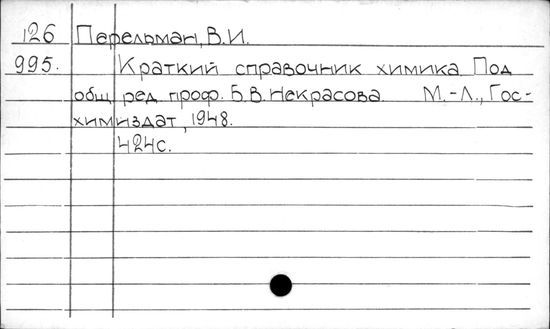 126 Перельман, В.И.
995. Краткий справочник химика. Под
общ. ред. проф. Б.В. Некрасова. М.-Л., Гос-
химиздат, 1948.
424с.